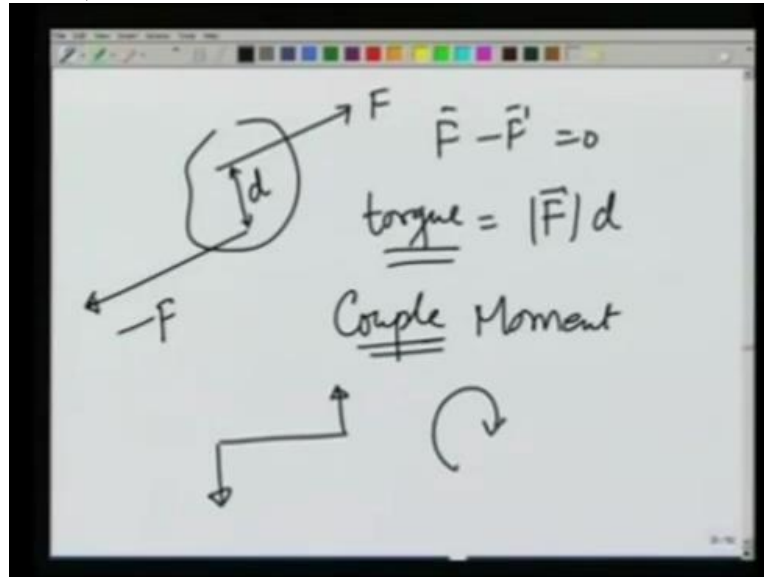 F
F̄ − F̄' = 0
d
torque = |F̄| d
−F
Couple Moment